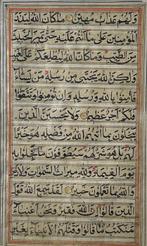 ولهم عذاب مهين ما كان الله ليذر
المؤمنين على ما انتم عليه حتى يميز الخبيث
من الطيب وما كان الله ليطلعكم على الغيب
ولكن الله يجتبي من رسله من يشاء
فامنوا بالله ورسله وان تؤمنوا وتتقوا
فلكم اجر عظيم ولا يحسبن الذين
يبخلون بما اتيهم الله من فضله هو خيرا لهم
بل هو شر لهم سيطوقون ما بخلوا به
يوم القيمة ولله ميراث السموات والارض
والله بما تعملون خبير لقد سمع الله قول
الذين قالوا ان الله فقير ونحن اغنياء
سنكتب ما قالوا وقتلهم الانبياء بغير